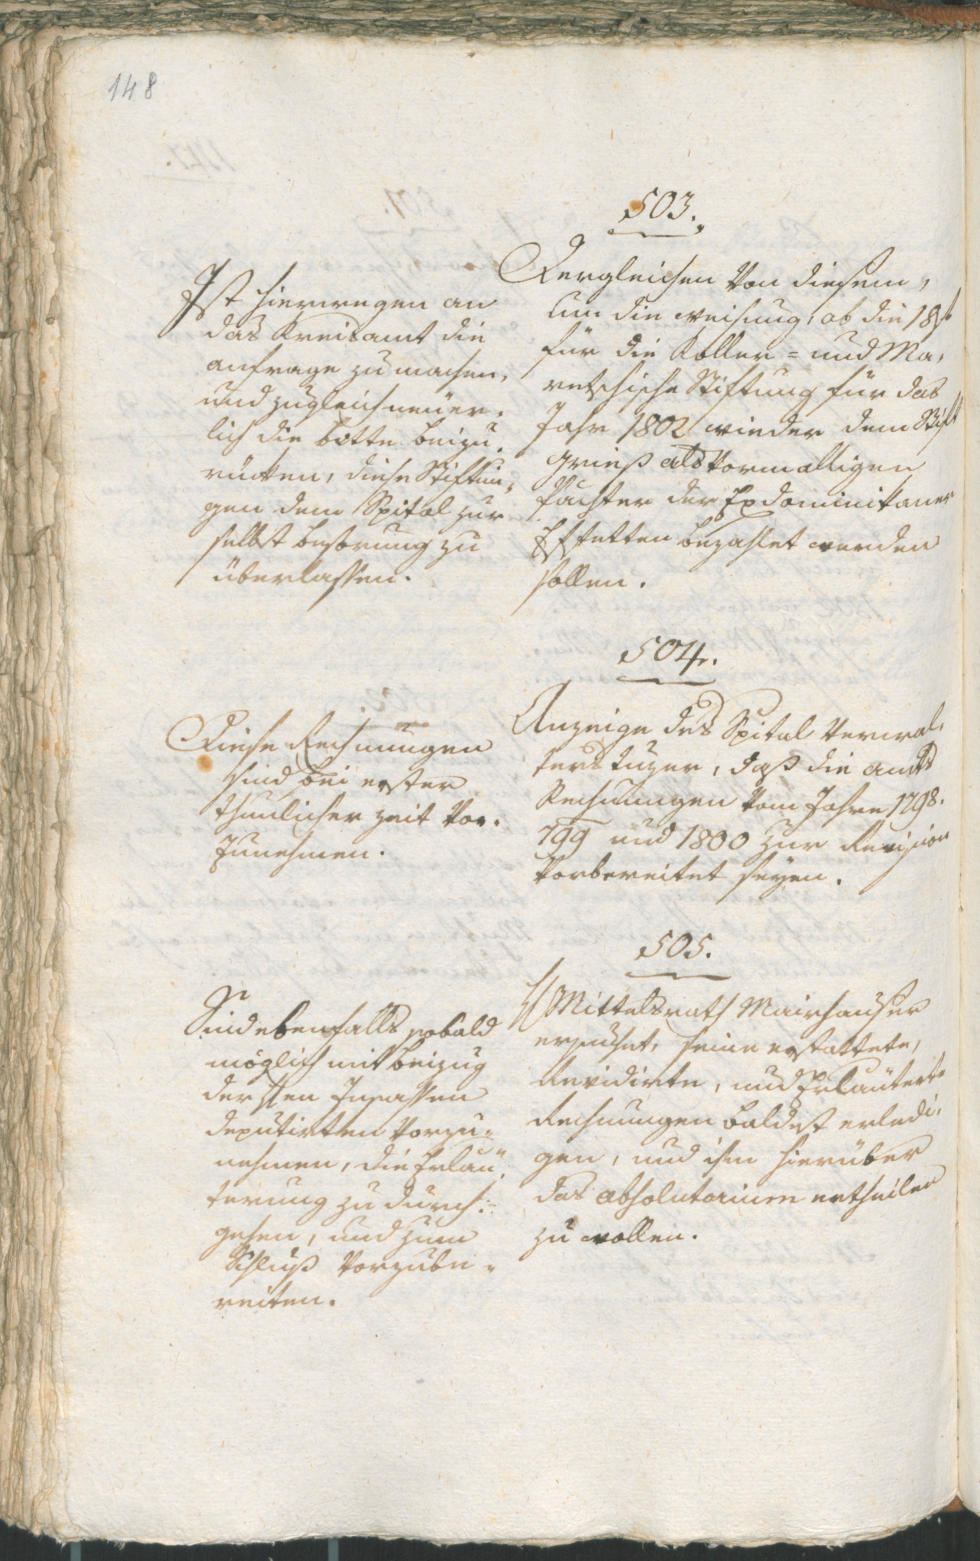 148
503.
Ist hierwegen an
das Kreisamt die
anfrage zu machen,
und zugleich neüer-
lich die bitte beizu-
rücken, diese Stiftun-
gen dem Spital zur
selbst besorung zu
überlassen.
Dergleichen von diesem,
um die weisung, ob die 18 f
für die Koller- und Ma-
retschische Stiftung für das
Jahr 1802 wieder dem Stift
Grieß als vormalligen
Pachter der Exdominikaner
Effekten bezahlet werden
sollen.
504.
Diese Rechnungen
sind bei erster
thunlicher zeit vor-
zunehmen.
Anzeige des Spital Verwal-
ters, daß die amts
Rechnungen vom Jahre 1798.
799 und 1800 zur Revision
vorbereitet seyen.
505.
Sind ebenfalls sobald
möglich mit beizug
der Inpassen
deputirten vorzu-
nehmen, die Erlaü-
terung zu durch-
gehen, und zum
Schluß vorzube-
reiten.
Mittelsrath Mairhauser
ersuchet, seine erstattete,
Revidirte, und Erlaüterte
Rechnungen baldest erledi-
gen, und ihm hierüber
das absolutorium ertheilen
zu wollen.